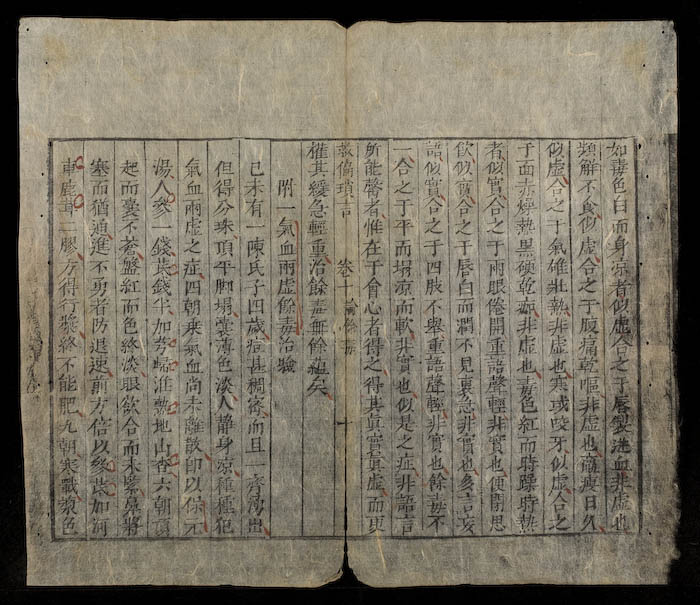 如毒色白而身涼者似虛合之于唇裂洗血非虛也
類解不食似虛合之于腹痛乾嘔非虛也薙瘦日久
似虛合之于氣雄壯熱非虛也寒或咬牙似虛合之
于面赤燥熱黑硬乾痂非虛也毒色紅而時躁時熱
者似實合之于兩眼倦開重語聲輕非實也便閉思
飲似實合之于唇白而潤不見裏急非實也多言妄
語似實合之于四肢不舉重語聲輕非實也餘毒不
一合之于平而塌涼而軟非實也似是之症非語言
所能罄者惟在于會心者得之得其真實真虛而更
救偏瑣言 卷十論餘毒 十
權其緩急輕重治餘毒無餘蘊矣
附一氣血兩虛餘毒治驗
己未有一陳氏子四歲痘甚稠密而且一齊湧出
但得分珠頂平脚塌囊薄色淡人靜身涼種種犯
氣血兩虛之症四朝乘氣血尚未離散即以保元
湯人參一錢芪錢半加芎歸淮熟地山查六朝頂
起而囊不蒼盤紅而色終淡眼欲合而未緊鼻將
塞而猶通進不勇者防退速前方倍以參芪加河
車鹿茸二膠方得行漿終不能肥九朝寒戰漿色